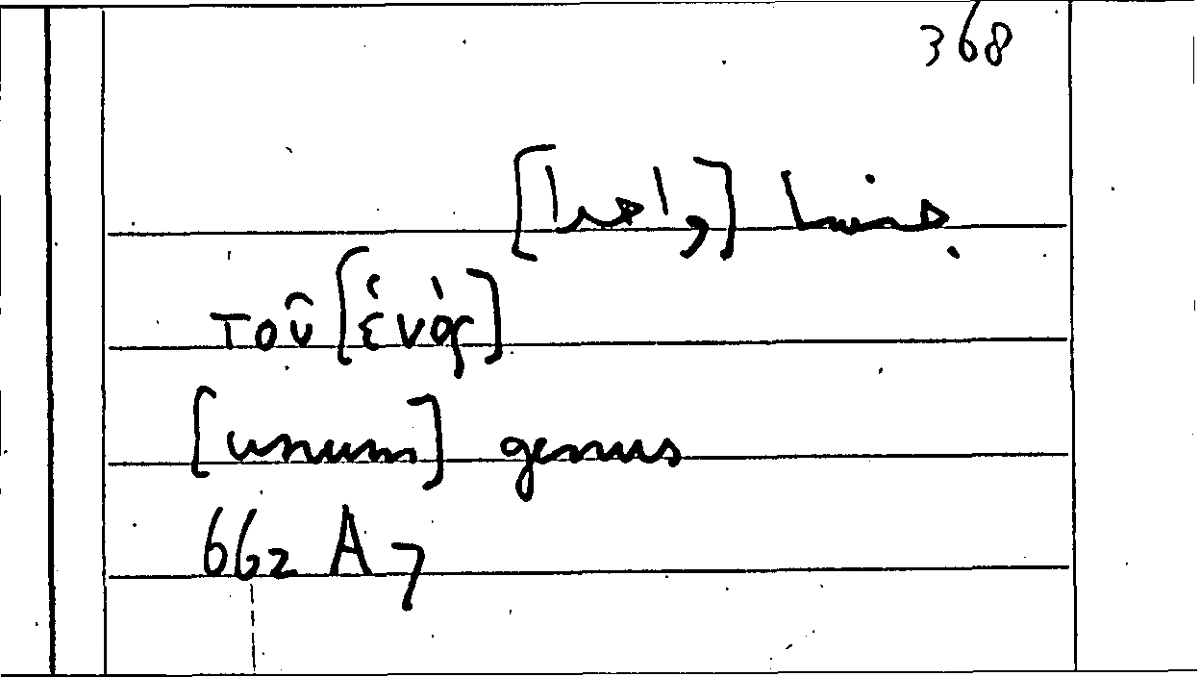 368
جنسا [واحدا]
τοῦ [ἑνός]
[unum] genus
662 A 7